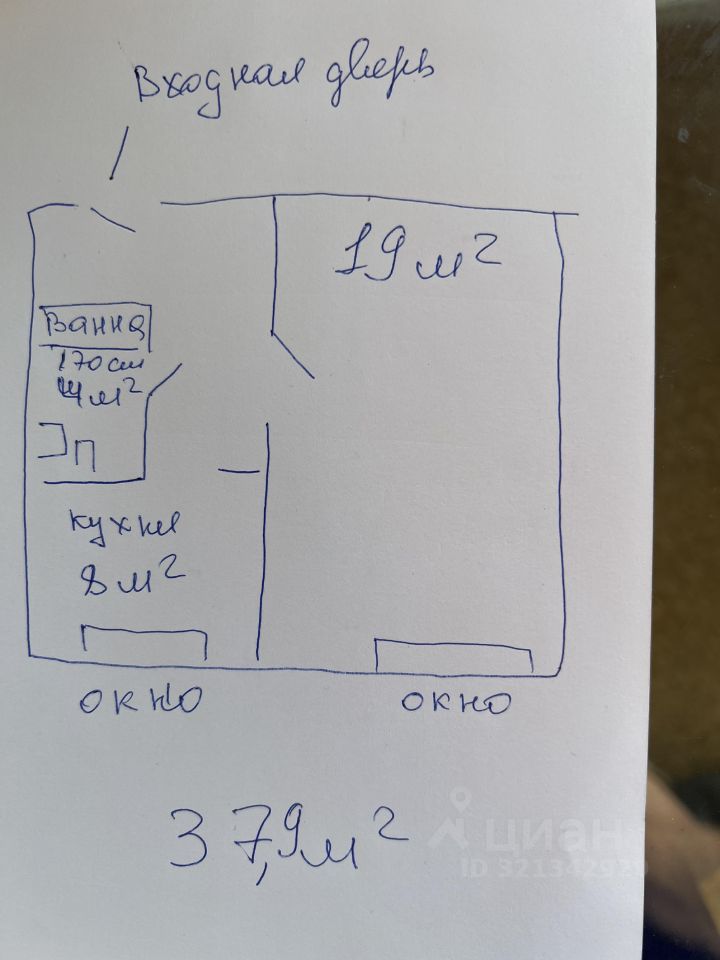 Входная дверь
19 м²
Ванна
170 см
4 м²
П
кухня
8 м²
окно
окно
37,9 м²
циан
ID 321342929